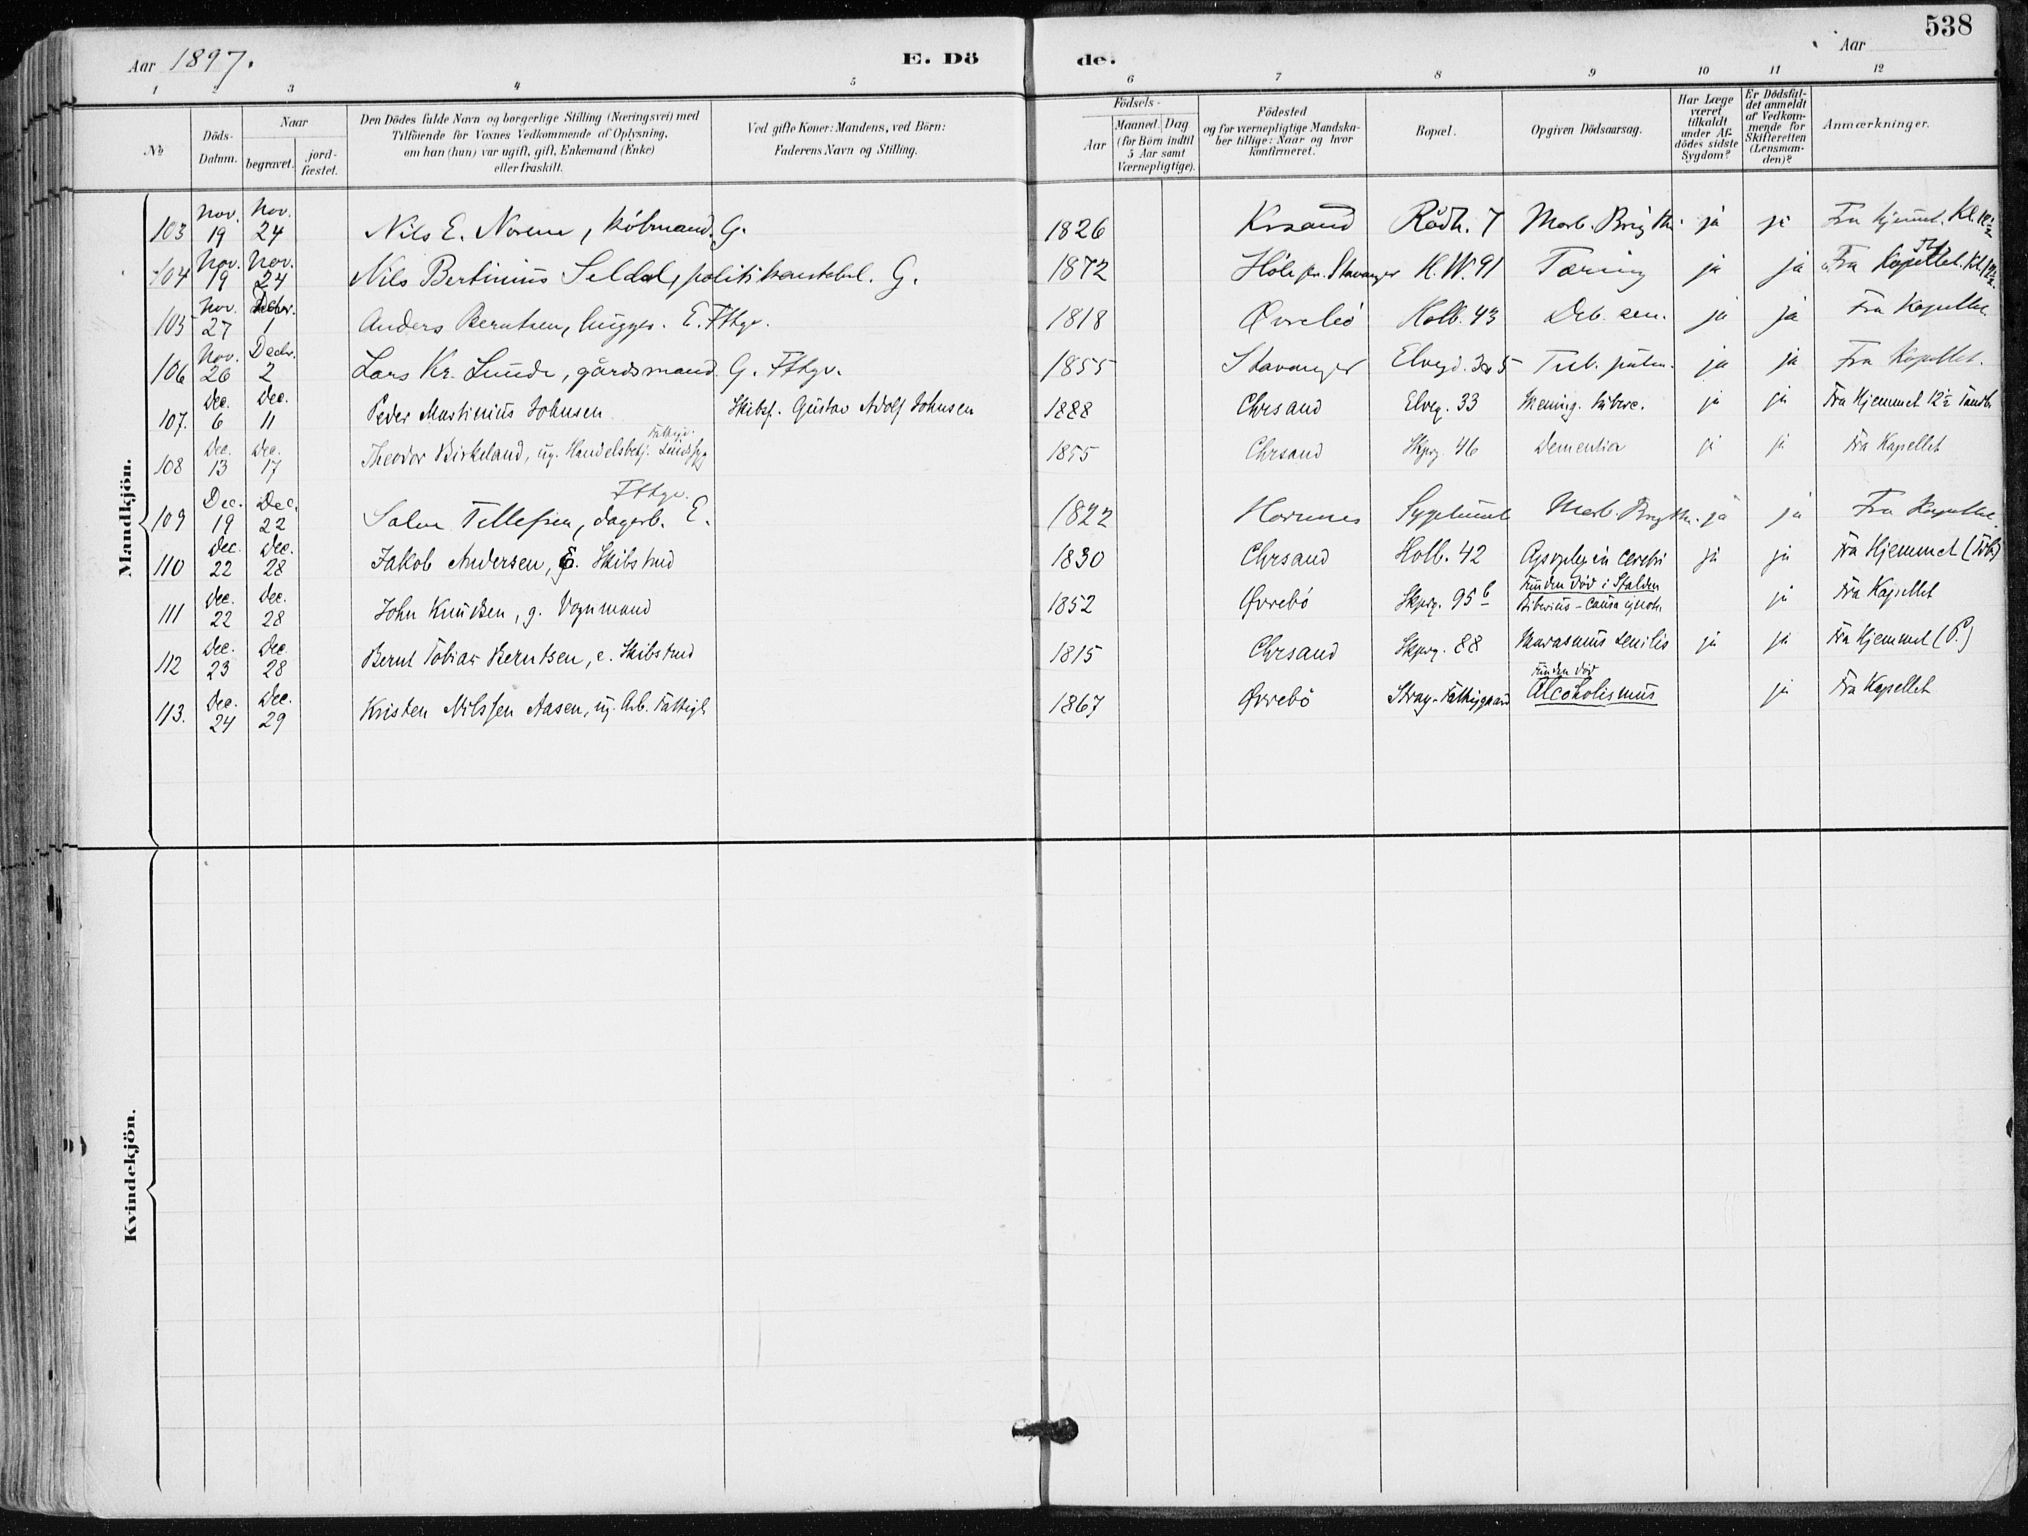 538
Aar 1897. E. Dö de. Aar
1 2 3 4 5 6 7 8 9 10 11 12
No Döds-Datum. Naar begravet. jord-fæstet. Den Dödes fulde Navn og borgerlige Stilling (Næringsvei) med Tilföiende for Voxnes Vedkommende af Oplysning, om han (hun) var ugift, gift, Enkemand (Enke) eller fraskilt. Ved gifte Koner: Mandens, ved Börn: Faderens Navn og Stilling. Födsels- Aar Maaned. Dag (for Börn indtil 5 Aar samt Værnepligtige). Födested og for værnepligtige Mandskaber tillige: Naar og hvor konfirmeret. Bopæl. Opgiven Dödsaarsag. Har Læge været tilkaldt under Afdödes sidste Sygdom? Er Dödsfaldet anmeldt af Vedkommende for Skifteretten (Lensmanden)? Anmærkninger.
Mandkjön.
103 Nov. 19 Nov. 24 Nils E. Norem, kobmand. G. 1826 Krsand Rådh. 7 Morb. Brigthi ja ja Fra hjemmet. Kl.
104 Nov. 19 Nov. 24 Nils Bertinius Seldal, politikonstabel. G. 1872 Höle pr. Stavanger K. W. 91 Tæring ja ja Fra Kapellet. Kl.
105 Nov. 27 1 Anders Berntsen, E. Ftgv. 1818 Øvrebö Holb. 43 Deb. sen. ja ja Fra Kapellet
106 Nov. 26 Decbr. 2 Lars Kr. Lunde, gårdsmand G. Ftgv. 1855 Stavanger Tub. pulm. ja ja Fra Kapellet.
107. Dec. 6 Dec. 11 Peder Martinius Johnsen Skibsf. Gustav Adolf Johnsen 1888 Chrsand Elveg. 33 Mening. tuberc. ja ja Fra Hjemmet 12½
108 Dec. 13 Dec. 17 Theodor Birkeland, ug. Handelsbetj. 1855 Chrsand Skprg. 46 Dementia ja ja Fra Kapellet
109 Dec. 19 Dec. 22 Salve Tellefsen, dagarb. E. Ftgv. 1822 Hornnes Morb. Brigthi ja ja Fra Kapellet.
110 Dec. 22 Dec. 28 Jakob Andersen, E. Skibstmd 1830 Chrsand Holb. 42 Apoplexia cerebri ja ja Fra Hjemmet
111 Dec. 22 Dec. 28 John Knudsen, g. Vognmand 1852 Øvrebö Skprg. 95 b Funden död i Stalden ja Fra Kapellet
112 Dec. 23 Dec. 28 Bernt Tobias Berntsen, e. Skibstmd 1815 Chrsand Skprg. 88 Marasmus senilis ja ja Fra Hjemmet (P.)
113. Dec. 24 Dec. 29 Kristen Nilssen Aasen, ug. Arb. Fattigl. 1867 Øvrebö Stray-Fattiggaard Funden död Alcoholismus ja Fra Kapellet
Kvindekjön.